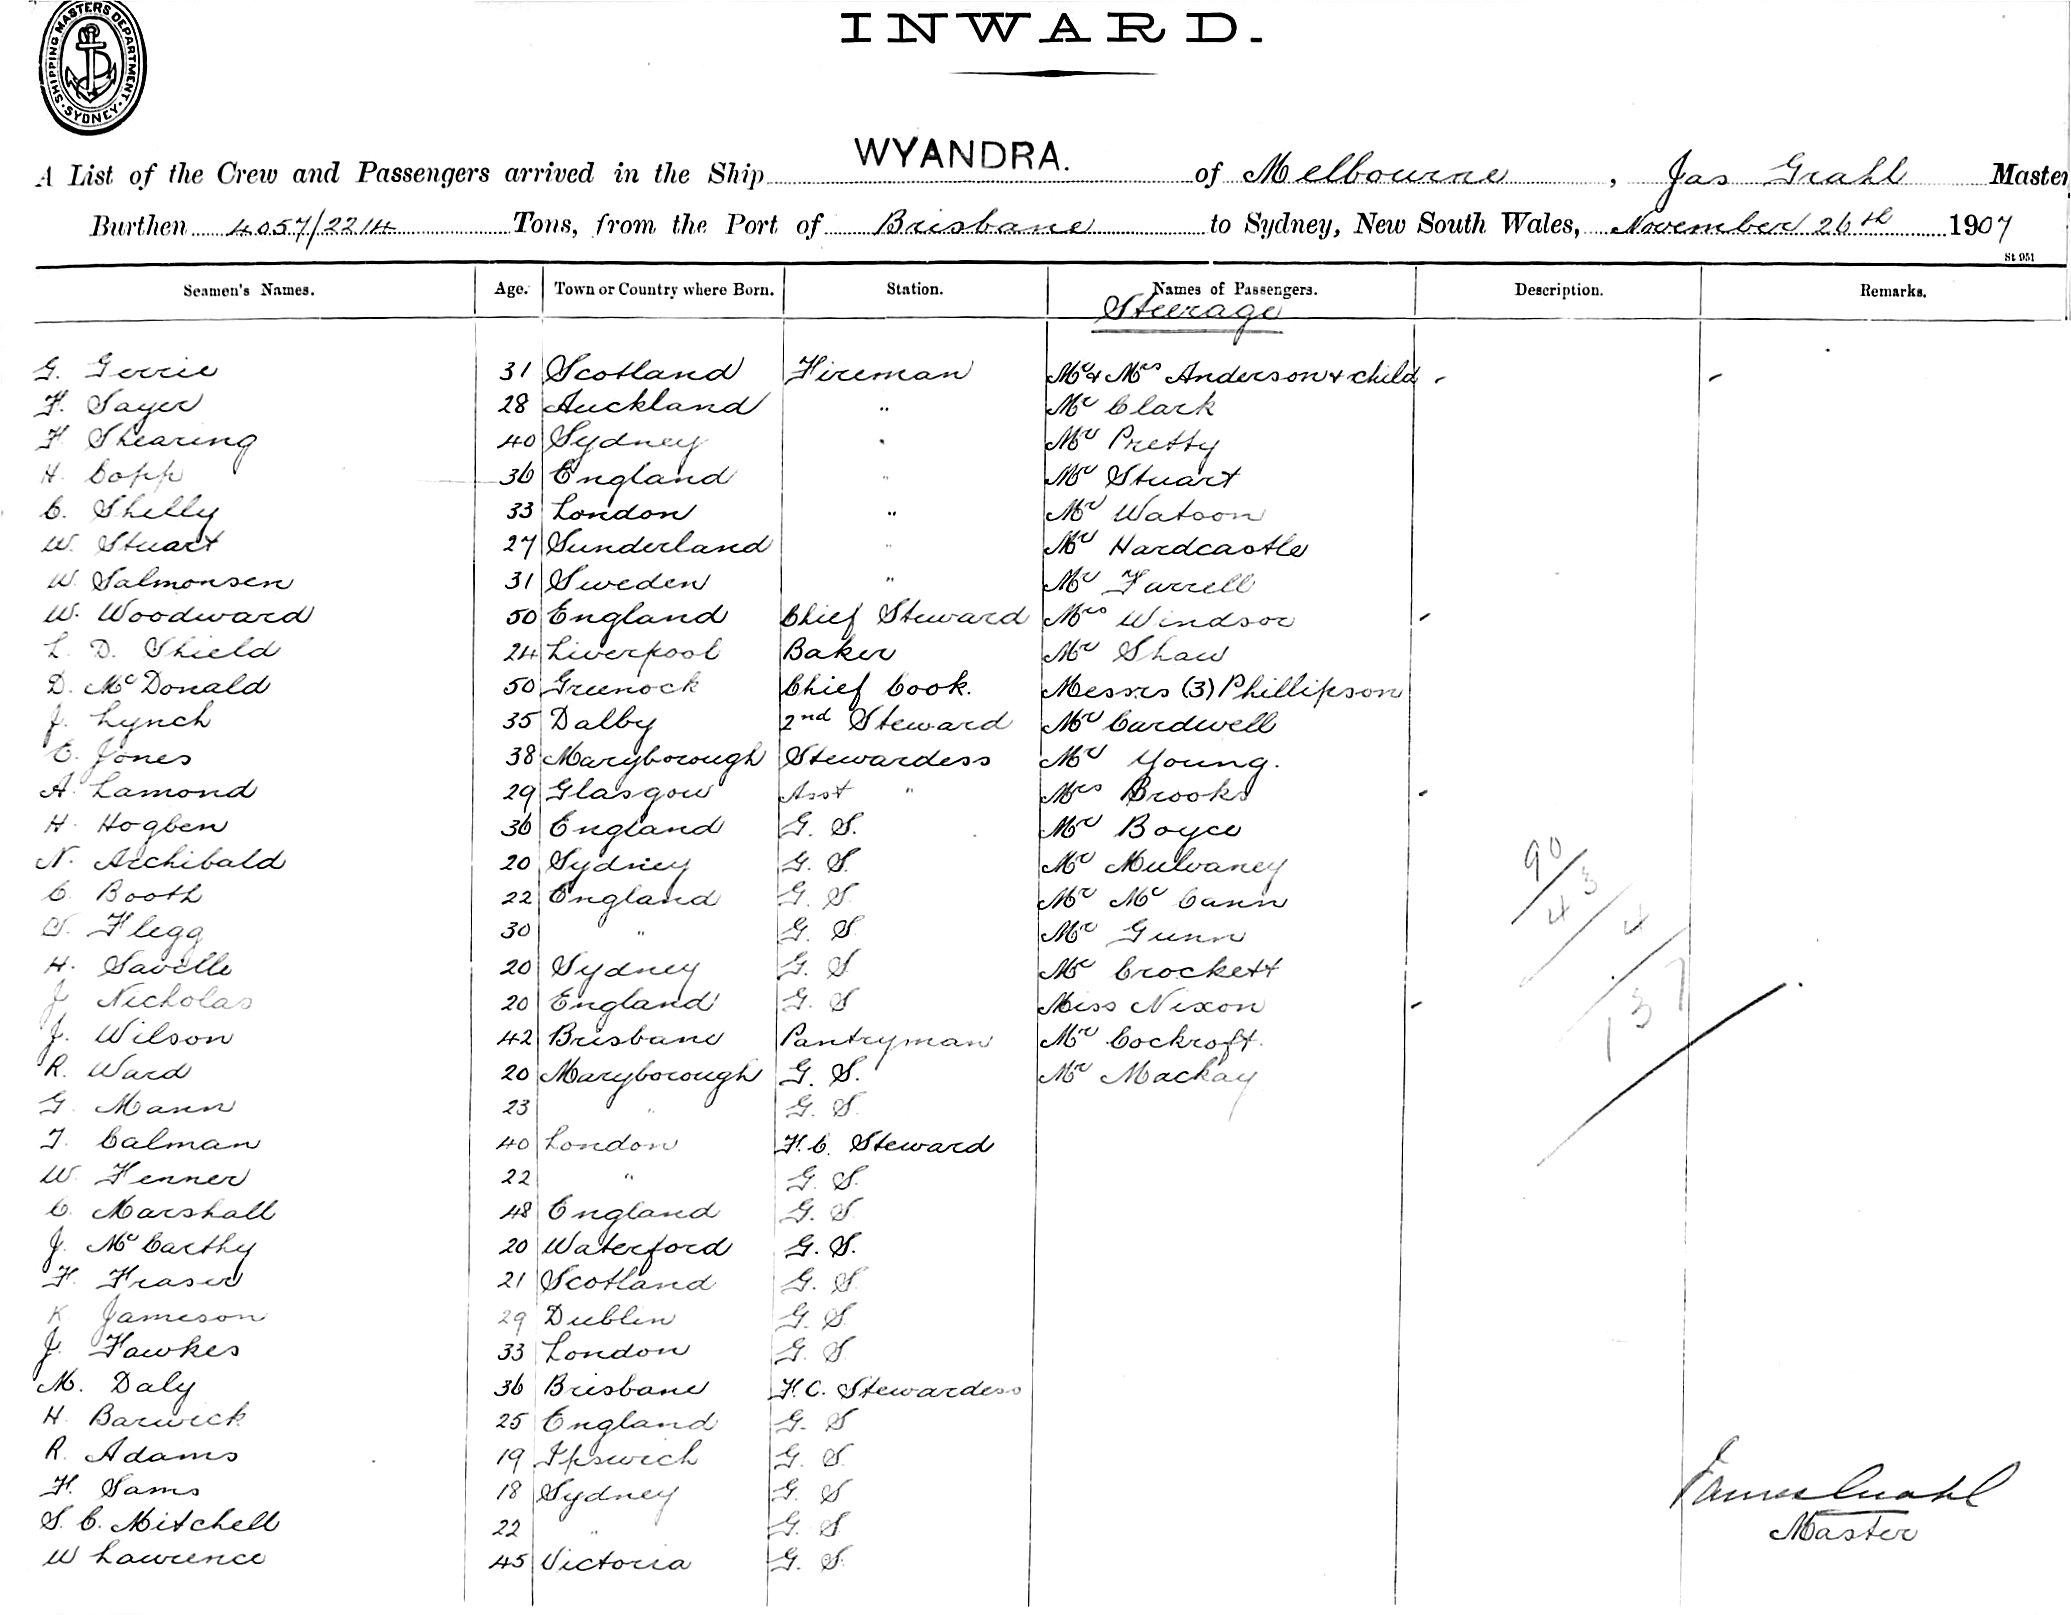 SHIPPING MASTERS DEPARTMENT. SYDNEY
INWARD.
A List of the Crew and Passengers arrived in the Ship WYANDRA. of Melbourne, Jas Grahl Master
Burthen 4057/2214 Tons, from the Port of Brisbane to Sydney, New South Wales, November 26th 1907
St 951
Seamen's Names. Age. Town or Country where Born. Station. Names of Passengers. Description. Remarks.
Steerage
G. Gerrie 31 Scotland Fireman Mr & Mrs Anderson & child
F. Sayer 28 Auckland " Mr Clark
F. Shearing 40 Sydney " Mr Pretty
H. Copp 36 England " Mr Stuart
C. Shelly 33 London " Mr Watson
W. Stuart 27 Sunderland " Mr Hardcastle
W. Salmonsen 31 Sweden " Mr Farrell
W. Woodward 50 England Chief Steward Mrs Windsor
L. D. Shield 24 Liverpool Baker Mr Shaw
D. McDonald 50 Greenock Chief Cook. Messrs (3) Phillipson
J. Lynch 35 Dalby 2nd Steward Mr Cardwell
E. Jones 38 Maryborough Stewardess Mr Young.
A. Lamond 29 Glasgow Asst " Mrs Brooks
H. Hogben 36 England G. S. Mr Boyce
N. Archibald 20 Sydney G. S. Mr Mulvaney
C. Booth 22 England G. S. Mr McCann
Flegg 30 " G. S. Mr Gunn
H. Savelle 20 Sydney G. S Mr Crockett
J Nicholas 20 England G. S Miss Nixon
J. Wilson 42 Brisbane Pantryman Mr Cockroft.
R. Ward 20 Maryborough G. S. Mr Mackay
G. Mann 23 " G. S.
T. Calman 40 London F. C. Steward
W. Fenner 22 " G. S.
C. Marshall 48 England G. S
J. McCarthy 20 Waterford G. S.
F. Fraser 21 Scotland G. S.
K Jameson 29 Dublin G. S
J. Fawkes 33 London G. S
M. Daly 36 Brisbane F. C. Stewardess
H. Barwick 25 England G. S
R. Adams 19 Ipswich G. S.
F. Sams 18 Sydney G. S
S. C. Mitchell 22 " G. S.
W Lawrence 45 Victoria G. S.
90/43/4/137
James Grahl
Master